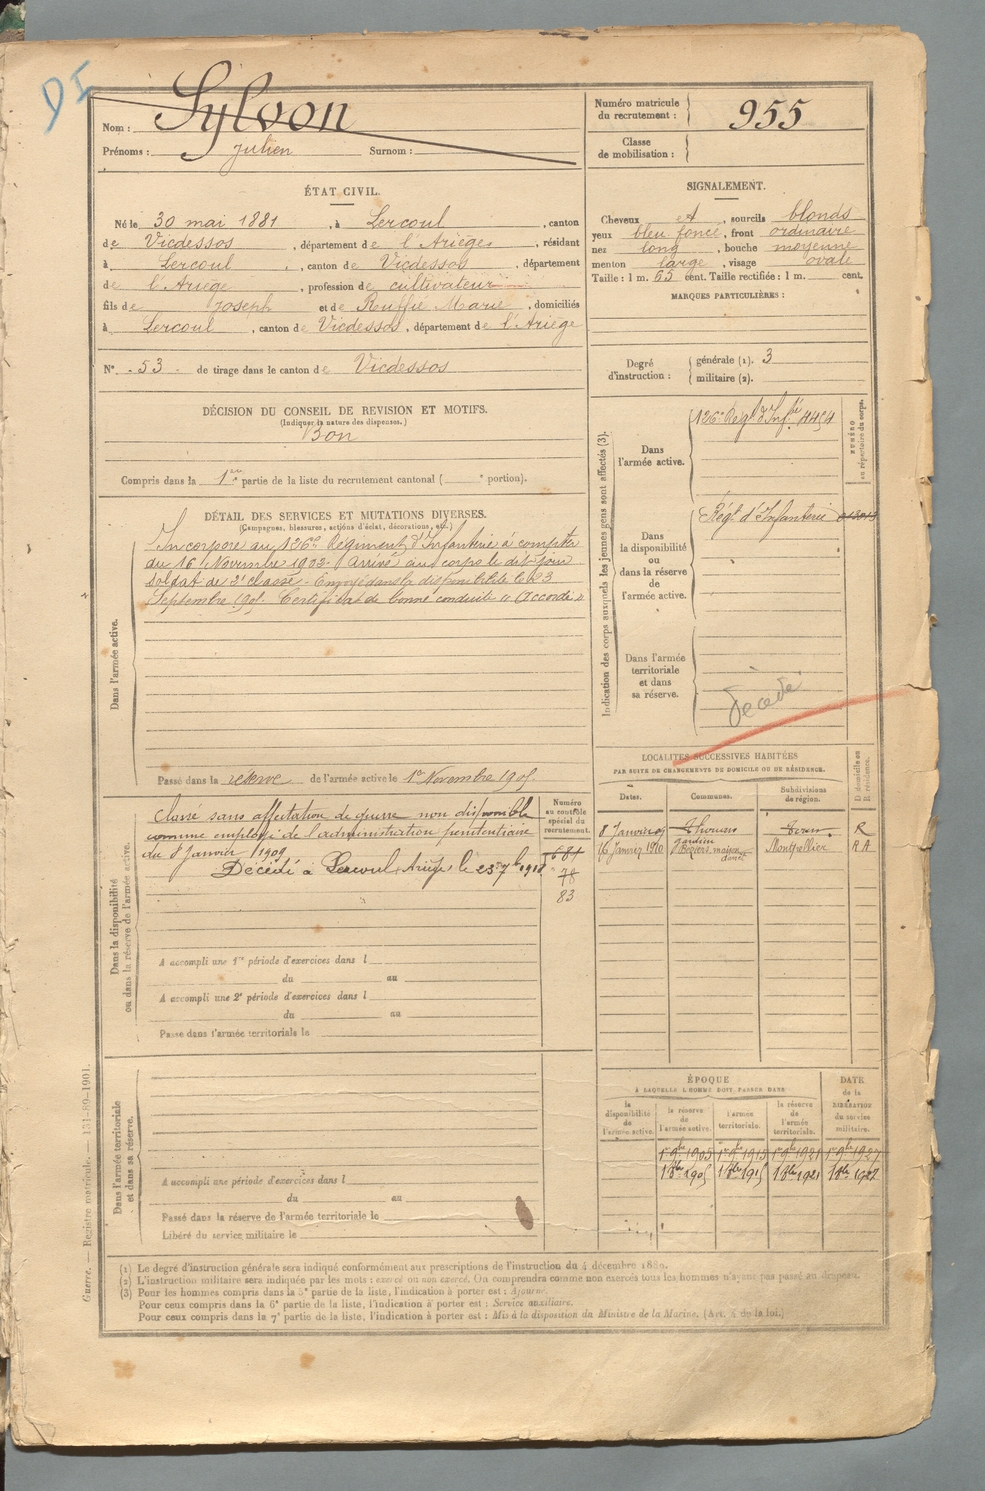 DI
Nom : Sylvon
Prénoms : Julien Surnom :
Numéro matricule du recrutement : 955
Classe de mobilisation :
ÉTAT CIVIL.
Né le 30 mai 1881, à Lercoul, canton
de Vicdessos, département de l'Ariège, résidant
à Lercoul, canton de Vicdessos, département
de l'Ariège, profession de cultivateur
fils de Joseph et de Ruffié Marie, domiciliés
à Lercoul, canton de Vicdessos, département de l'Ariège
N° 53 de tirage dans le canton de Vicdessos
SIGNALEMENT.
Cheveux et, sourcils blonds
yeux bleu foncé, front ordinaire
nez long, bouche moyenne
menton large, visage ovale
Taille : 1 m. 65 cent. Taille rectifiée : 1 m. cent.
MARQUES PARTICULIÈRES :
Degré d'instruction : générale (1). 3
militaire (2).
DÉCISION DU CONSEIL DE REVISION ET MOTIFS.
(Indiquer la nature des dispenses.)
Bon
Compris dans la 1re partie de la liste du recrutement cantonal ( e portion).
DÉTAIL DES SERVICES ET MUTATIONS DIVERSES.
(Campagnes, blessures, actions d'éclat, décorations, etc.)
Dans l'armée active.
Incorporé au 126e Régiment d'Infanterie à compter
du 16 Novembre 1902. Arrivé au corps le dit jour
Soldat de 2e classe. Envoyé dans la disponibilité le 23
Septembre 1905. Certificat de bonne conduite "Accordé"
Passé dans la réserve de l'armée active le 1er Novembre 1905
Indication des corps auxquels les jeunes gens sont affectés (3).
NUMÉRO au répertoire du corps.
Dans l'armée active.
126e Régt d'Infie 4454
Dans la disponibilité ou dans la réserve de l'armée active.
Régt d'Infanterie
Dans l'armée territoriale et dans sa réserve.
Décédé
Dans la disponibilité ou dans la réserve de l'armée active.
Classé sans affectation de guerre non disponible
comme employé de l'administration pénitentiaire
du 8 Janvier 1909
Décédé à Lercoul, Ariège, le 23 7bre 1918
Numéro au contrôle spécial du recrutement.
681
78
83
A accompli une 1re période d'exercices dans l
du au
A accompli une 2e période d'exercices dans l
du au
Passé dans l'armée territoriale le
LOCALITÉS SUCCESSIVES HABITÉES
PAR SUITE DE CHANGEMENTS DE DOMICILE OU DE RÉSIDENCE.
Dates. Communes. Subdivisions de région. D domicile ou R résidence.
8 Janvier 09 R
16 Janvier 1910 gardien Béziers maison Montpellier R A
Dans l'armée territoriale et dans sa réserve.
A accompli une période d'exercices dans l
du au
Passé dans la réserve de l'armée territoriale le
Libéré du service militaire le
ÉPOQUE
À LAQUELLE L'HOMME DOIT PASSER DANS
DATE de la LIBÉRATION du service militaire.
la disponibilité de l'armée active. la réserve de l'armée active. l'armée territoriale. la réserve de l'armée territoriale.
1er 9bre 1905 1er 9bre 1915 1er 9bre 1921 1er 9bre 1927
1 8bre 1905 1 8bre 1915 1 8bre 1921 1 8bre 1927
(1) Le degré d'instruction générale sera indiqué conformément aux prescriptions de l'instruction du 4 décembre 1889.
(2) L'instruction militaire sera indiquée par les mots : exercé ou non exercé. On comprendra comme non exercés tous les hommes n'ayant pas passé au drapeau.
(3) Pour les hommes compris dans la 5e partie de la liste, l'indication à porter est : Ajourné.
Pour ceux compris dans la 6e partie de la liste, l'indication à porter est : Service auxiliaire.
Pour ceux compris dans la 7e partie de la liste, l'indication à porter est : Mis à la disposition du Ministre de la Marine. (Art. 4 de la loi.)
Guerre. — Registre matricule. — 131-89-1901.